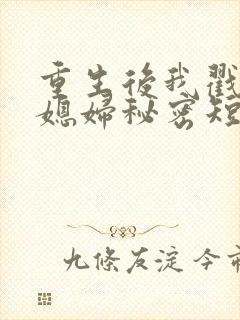 重生後我戳
媳婦秘密短
九條友淀今市